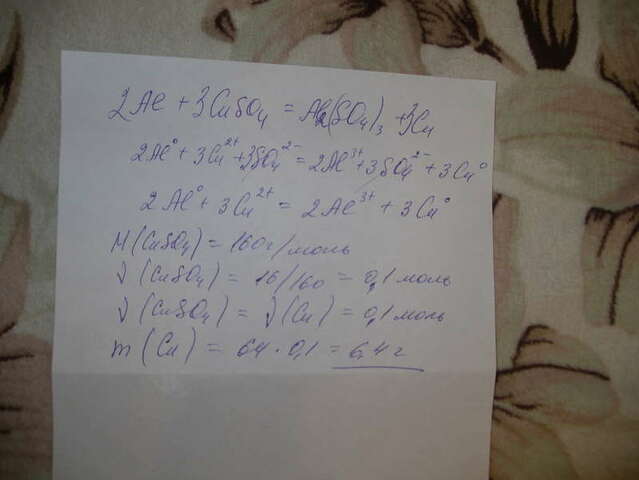 2Al + 3CuSO₄ = Al₂(SO₄)₃ + 3Cu
2Al⁰ + 3Cu²⁺ + 3SO₄²⁻ = 2Al³⁺ + 3SO₄²⁻ + 3Cu⁰
2Al⁰ + 3Cu²⁺ = 2Al³⁺ + 3Cu⁰
M(CuSO₄) = 160 г/моль
ν(CuSO₄) = 16/160 = 0,1 моль
ν(CuSO₄) = ν(Cu) = 0,1 моль
m(Cu) = 64 · 0,1 = 6,4 г